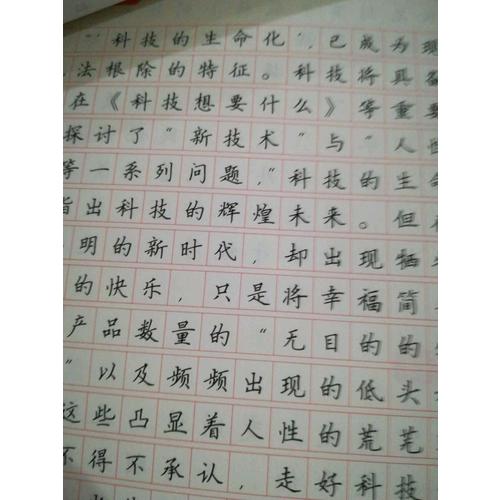 “‘科技的生命化’,已成为现
法根除的特征。科技将具备
在《科技想要什么》等重要
探讨了“新技术”与“人性
等一系列问题,“科技的生命
指出科技的辉煌未来。但在
明的新时代,却出现牺牲
的快乐,只是将幸福简
产品数量的“无目的的
”以及频频出现的低头
这些凸显着人性的荒芜
不得不承认,走好科技